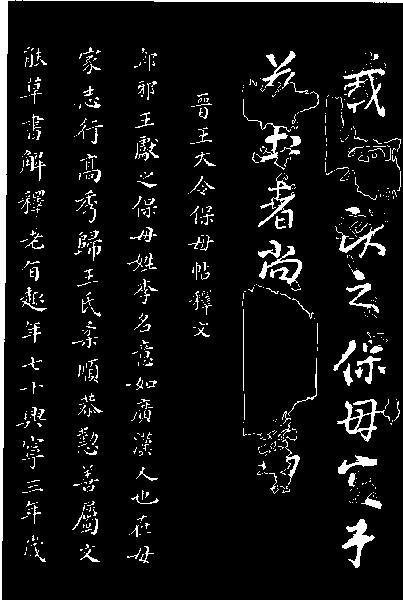 載獻之保母宮于
茲土者尚
晉王大令保母帖釋文
郎耶王獻之保母姓李名意如廣漢人也在母
家志行高秀歸王氏柔順恭懃善屬文
能草書解釋老旨趣年七十興寧三年歲